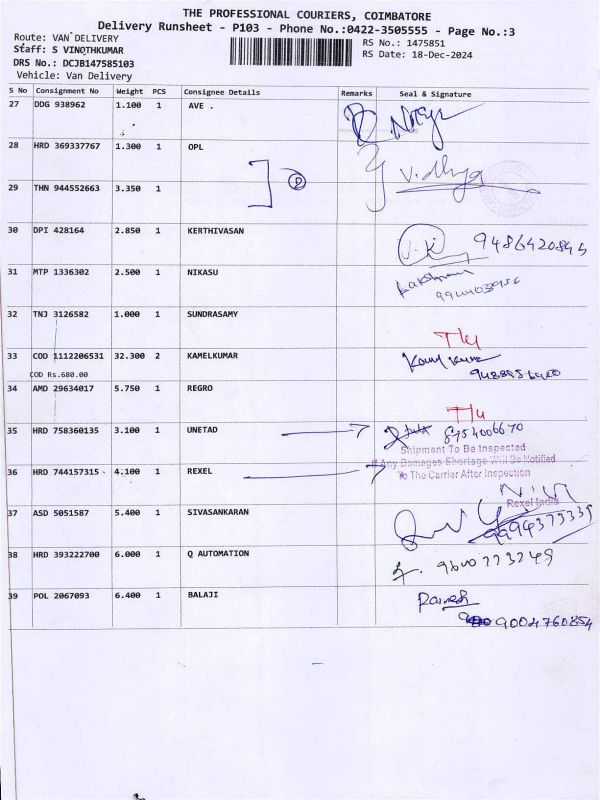 THE PROFESSIONAL COURIERS, COIMBATORE
Delivery Runsheet - P103 - Phone No.:0422-3505555 - Page No.:3
Route: VAN DELIVERY
RS No.: 1475851
Staff: S VINOTHKUMAR
RS Date: 18-Dec-2024
DRS No.: DCJB147585103
Vehicle: Van Delivery
S No Consignment No Weight PCS Consignee Details Remarks Seal & Signature
27 DDG 938962 1.100 1 AVE .
28 HRD 369337767 1.300 1 OPL
Vidhya
29 THN 944552663 3.350 1
2
30 DPI 428164 2.850 1 KERTHIVASAN
31 MTP 1336302 2.500 1 NIKASU
32 TNJ 3126582 1.000 1 SUNDRASAMY
33 COD 1112206531 32.300 2 KAMELKUMAR
COD Rs.680.00
34 AMD 29634017 5.750 1 REGRO
35 HRD 758360135 3.100 1 UNETAD
8754006670
Shipment To Be Inspected
If Any Damages Shortage Will Be Notified
To The Carrier After Inspection
36 HRD 744157315 4.100 1 REXEL
Rexel India
37 ASD 5051587 5.400 1 SIVASANKARAN
38 HRD 393222700 6.000 1 Q AUTOMATION
39 POL 2067093 6.400 1 BALAJI
9004760854